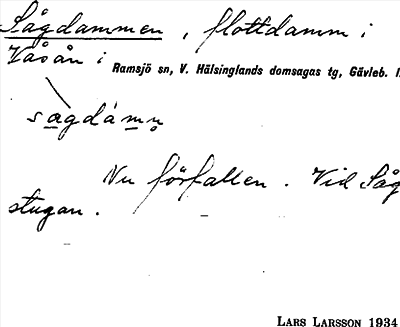 Sågdammen, flottdamm i
Våsån i Ramsjö sn, V. Hälsinglands domsagas tg, Gävleb. l.
sagdámn
Nu förfallen. Vid Såg
stugan.
LARS LARSSON 1934